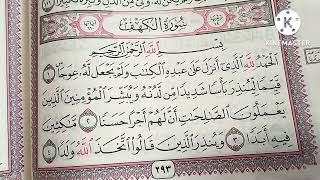 سُورَةُ الكَهْفِ
KINEMASTER
بِسْمِ ٱللَّهِ ٱلرَّحْمَٰنِ ٱلرَّحِيمِ
ٱلْحَمْدُ لِلَّهِ ٱلَّذِىٓ أَنزَلَ عَلَىٰ عَبْدِهِ ٱلْكِتَٰبَ وَلَمْ يَجْعَل لَّهُۥ عِوَجَا ۜ ١
قَيِّمًا لِّيُنذِرَ بَأْسًا شَدِيدًا مِّن لَّدُنْهُ وَيُبَشِّرَ ٱلْمُؤْمِنِينَ ٱلَّذِينَ
يَعْمَلُونَ ٱلصَّٰلِحَٰتِ أَنَّ لَهُمْ أَجْرًا حَسَنًا ٢ مَّٰكِثِينَ
فِيهِ أَبَدًا ٣ وَيُنذِرَ ٱلَّذِينَ قَالُوا۟ ٱتَّخَذَ ٱللَّهُ وَلَدًا ٤
٢٩٣